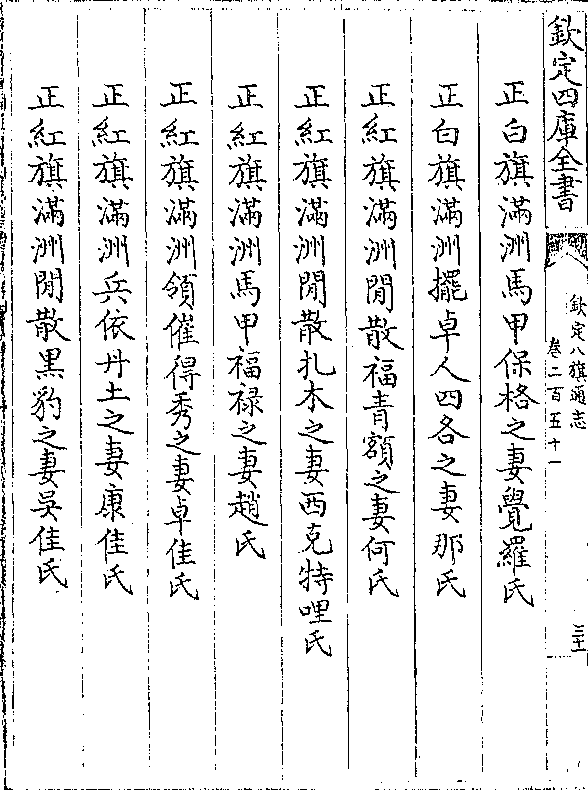 欽定四庫全書
欽定八旗通志
卷二百五十一
三十一
正白旗滿洲馬甲保格之妻覺羅氏
正白旗滿洲擺卓人四各之妻那氏
正紅旗滿洲閒散福青額之妻何氏
正紅旗滿洲閒散扎木之妻西克特哩氏
正紅旗滿洲馬甲福禄之妻趙氏
正紅旗滿洲領催得秀之妻卓佳氏
正紅旗滿洲兵依丹土之妻康佳氏
正紅旗滿洲閒散黒豹之妻吳佳氏